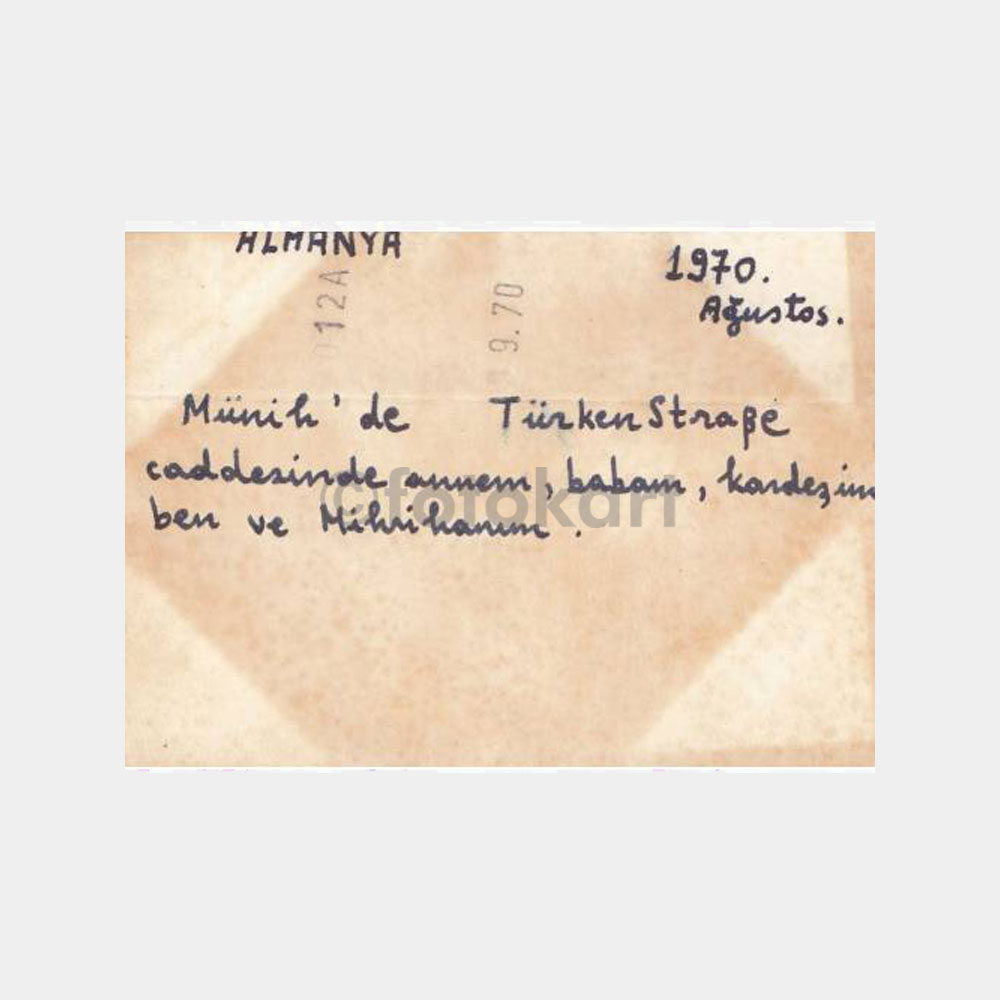 ALMANYA
1970.
Ağustos.
012A
9.70
Münih'de TürkenStraße
caddesinde annem, babam, kardeşim
ben ve Mihrihanım.
©fotokart